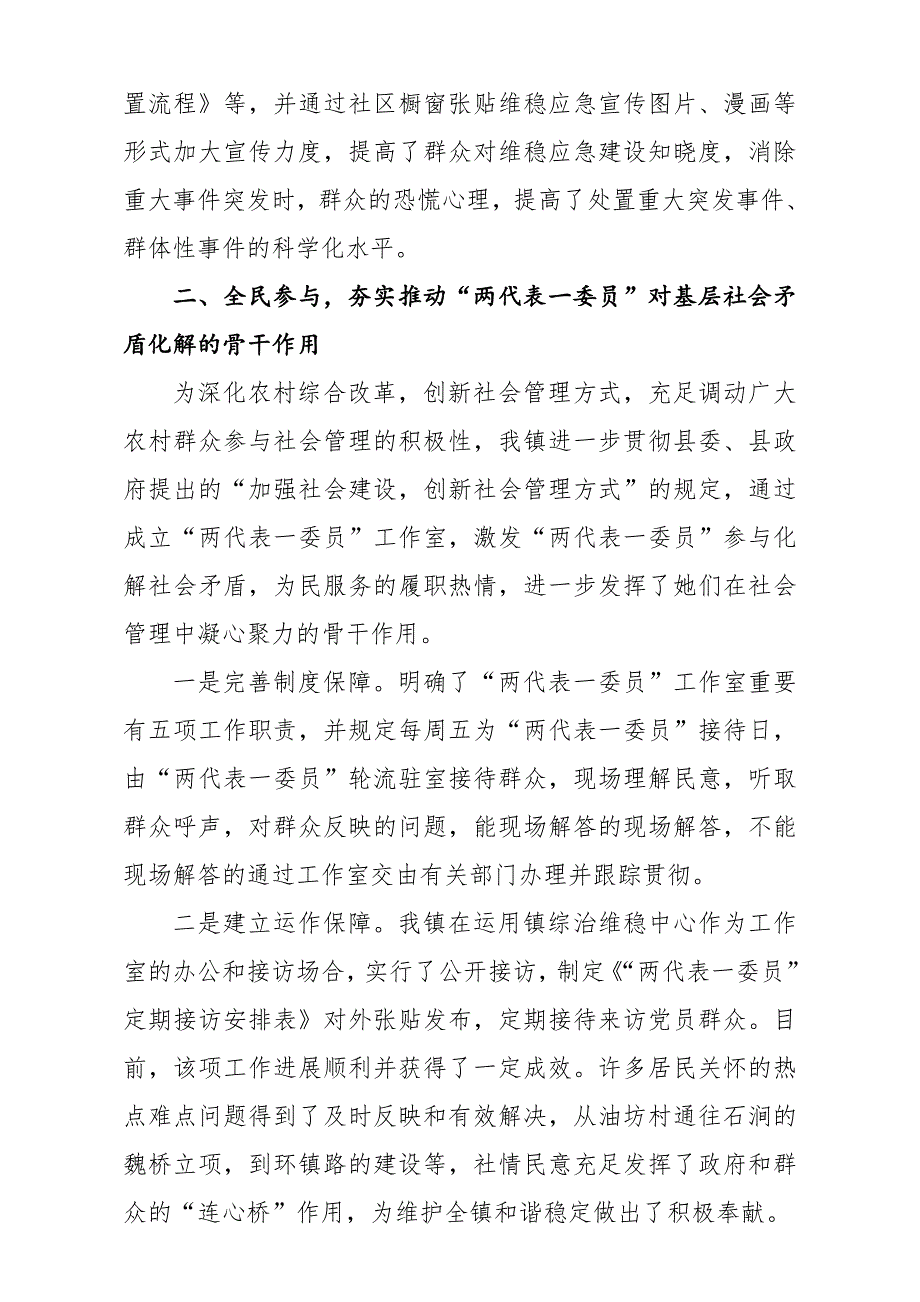 置流程》等，并通过社区橱窗张贴维稳应急宣传图片、漫画等
形式加大宣传力度，提高了群众对维稳应急建设知晓度，消除
重大事件突发时，群众的恐慌心理，提高了处置重大突发事件、
群体性事件的科学化水平。
二、全民参与，夯实推动“两代表一委员”对基层社会矛
盾化解的骨干作用
为深化农村综合改革，创新社会管理方式，充足调动广大
农村群众参与社会管理的积极性，我镇进一步贯彻县委、县政
府提出的“加强社会建设，创新社会管理方式”的规定，通过
成立“两代表一委员”工作室，激发“两代表一委员”参与化
解社会矛盾，为民服务的履职热情，进一步发挥了她们在社会
管理中凝心聚力的骨干作用。
一是完善制度保障。明确了“两代表一委员”工作室重要
有五项工作职责，并规定每周五为“两代表一委员”接待日，
由“两代表一委员”轮流驻室接待群众，现场理解民意，听取
群众呼声，对群众反映的问题，能现场解答的现场解答，不能
现场解答的通过工作室交由有关部门办理并跟踪贯彻。
二是建立运作保障。我镇在运用镇综治维稳中心作为工作
室的办公和接访场合，实行了公开接访，制定《“两代表一委员”
定期接访安排表》对外张贴发布，定期接待来访党员群众。目
前，该项工作进展顺利并获得了一定成效。许多居民关怀的热
点难点问题得到了及时反映和有效解决，从油坊村通往石涧的
魏桥立项，到环镇路的建设等，社情民意充足发挥了政府和群
众的“连心桥”作用，为维护全镇和谐稳定做出了积极奉献。